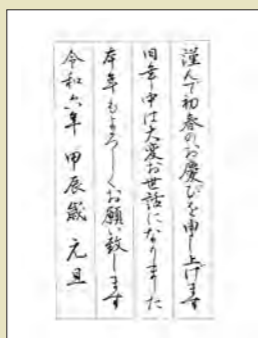 謹んで初春のお慶びを申し上げます
旧年中は大変お世話になりました
本年もよろしくお願い致します
令和六年 甲辰歳 元旦